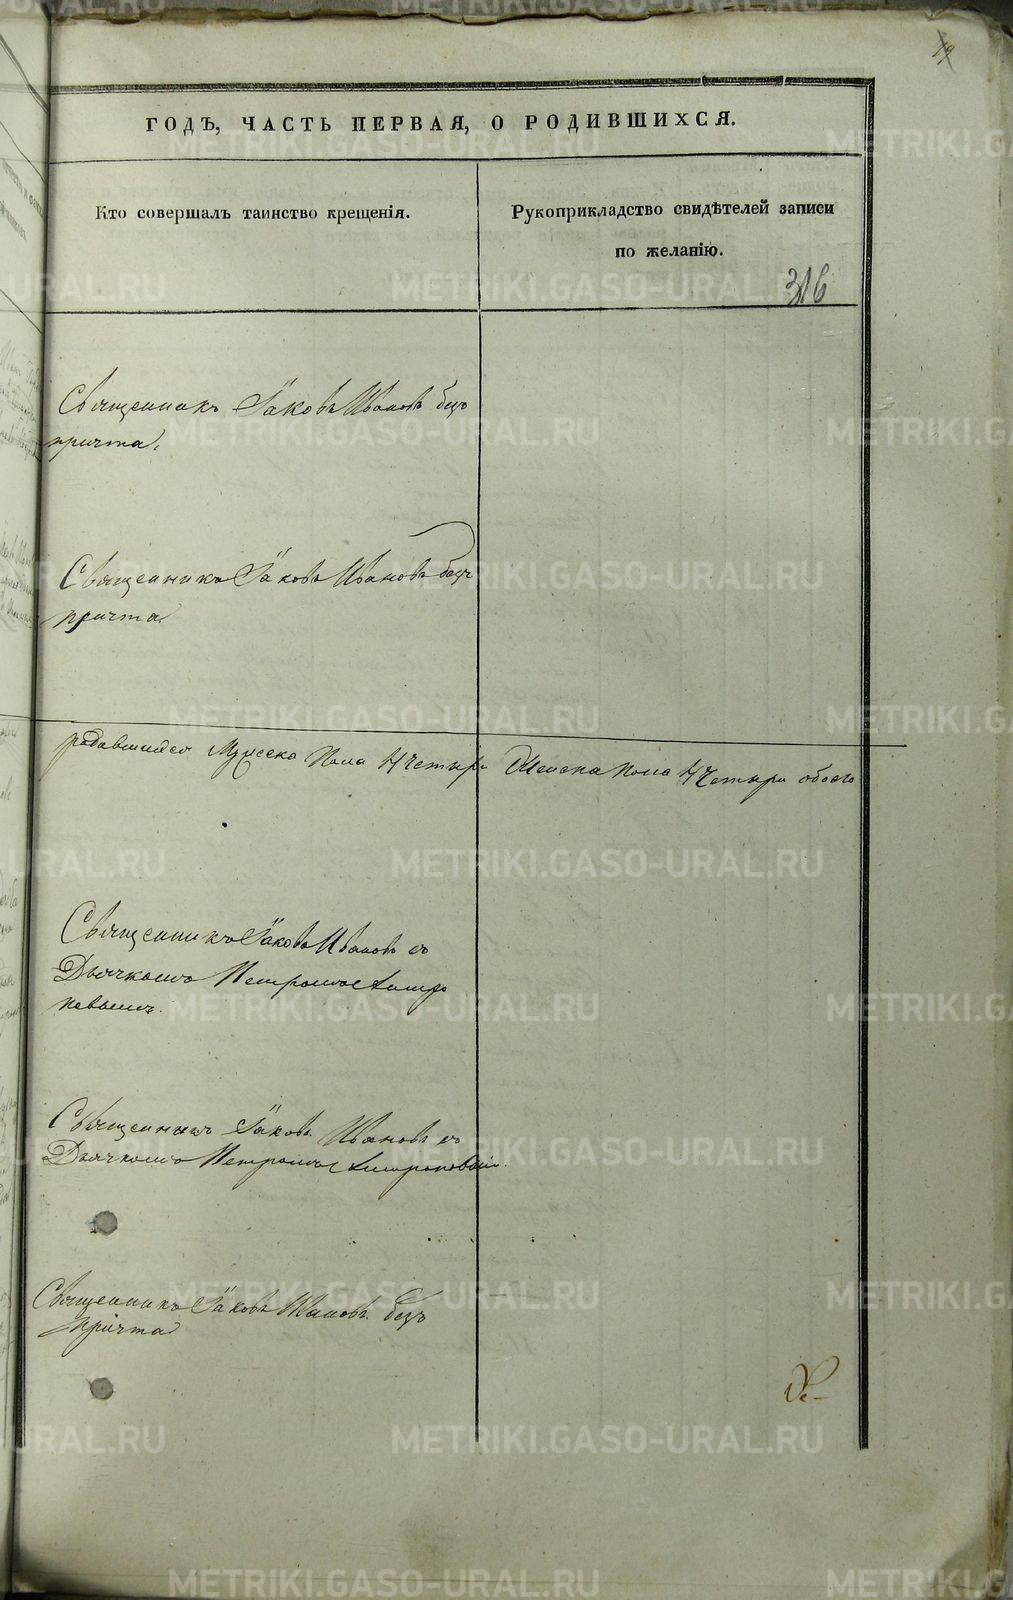 19
ГОДЪ, ЧАСТЬ ПЕРВАЯ, О РОДИВШИХСЯ.
Кто совершалъ таинство крещенія.
Рукоприкладство свидѣтелей записи
по желанію.
316
Священникъ Іаковъ Ивановъ безъ
причта.
Священникъ Іаковъ Ивановъ безъ
причта
родившихся Мужеска Пола 4 Четыри Женска пола 4 Четыри обоего
Священникъ Іаковъ Ивановъ съ
Дьячкомъ Петромъ
Священникъ Іаковъ Ивановъ съ
Дьячкомъ Петромъ
Священникъ Іаковъ Ивановъ безъ
Причта
METRIKI.GASO-URAL.RU